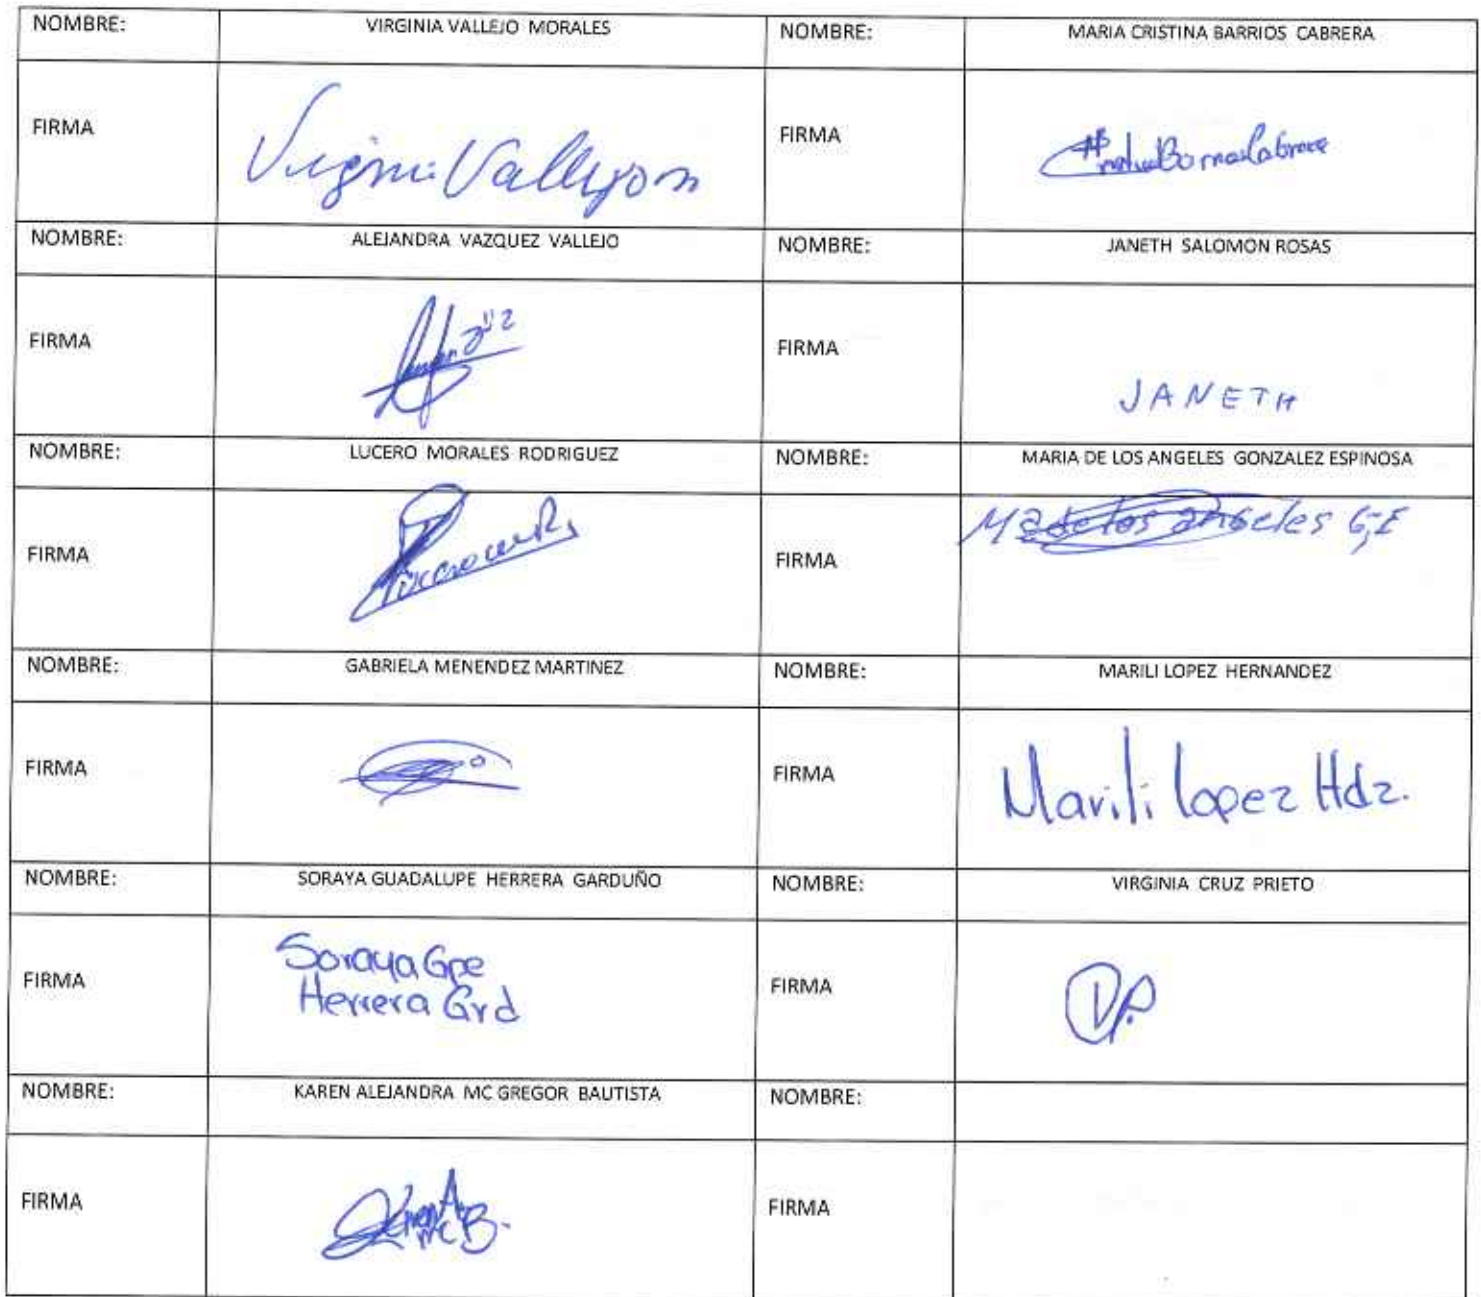 NOMBRE: VIRGINIA VALLEJO MORALES NOMBRE: MARIA CRISTINA BARRIOS CABRERA
FIRMA Virgini Vallejo m FIRMA
NOMBRE: ALEJANDRA VAZQUEZ VALLEJO NOMBRE: JANETH SALOMON ROSAS
FIRMA FIRMA JANETH
NOMBRE: LUCERO MORALES RODRIGUEZ NOMBRE: MARIA DE LOS ANGELES GONZALEZ ESPINOSA
FIRMA FIRMA Ma de los angeles G,E
NOMBRE: GABRIELA MENENDEZ MARTINEZ NOMBRE: MARILI LOPEZ HERNANDEZ
FIRMA FIRMA Marili lopez Hdz.
NOMBRE: SORAYA GUADALUPE HERRERA GARDUÑO NOMBRE: VIRGINIA CRUZ PRIETO
FIRMA Soraya Gpe
Herrera Grd
FIRMA
NOMBRE: KAREN ALEJANDRA MC GREGOR BAUTISTA NOMBRE:
FIRMA FIRMA